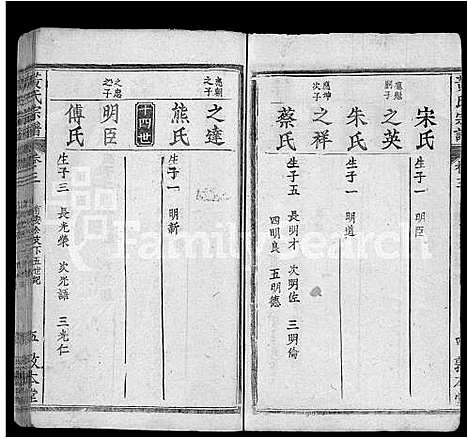 宋氏
生子一 明臣
應魁之子
之英
朱氏
生子一 明道
應坤次子
之祥
蔡氏
生子五 長明才 次明佐 三明倫
四明良 五明德
敦本堂
應朝之子
之達
熊氏
生子一 明新
十四世
之忠之子
明臣
傅氏
生子三 長光榮 次光語 三光仁
黃氏宗譜
卷三
五 敦本堂
FamilySearch